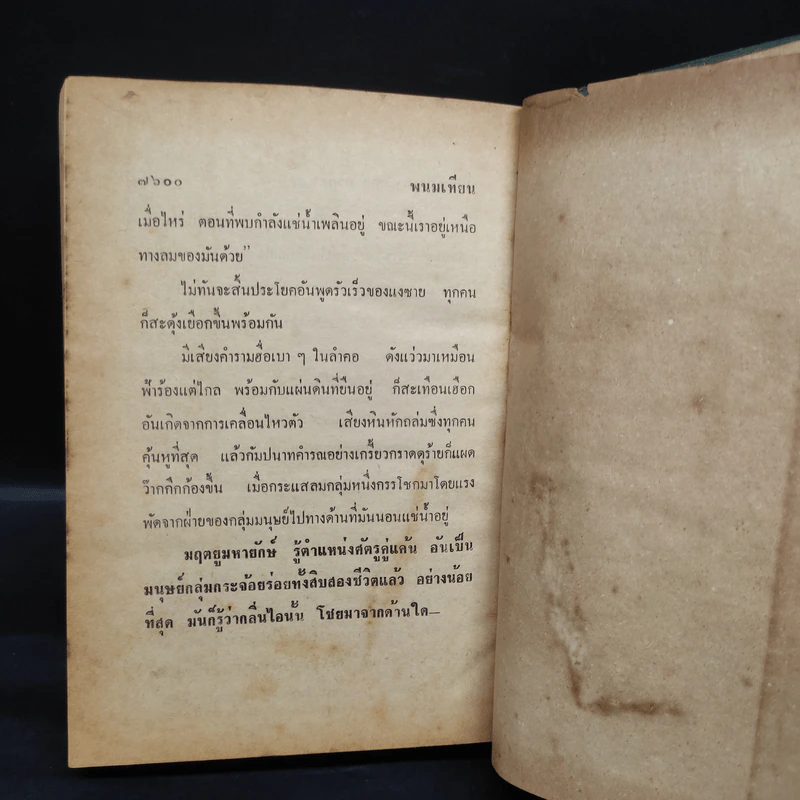 ๗๖๐๐ พนมเทียน
เมื่อไหร่ ตอนที่พบกำลังแช่น้ำเพลินอยู่ ขณะนี้เราอยู่เหนือ
ทางลมของมันด้วย"
ไม่ทันจะสิ้นประโยคอันพูดรัวเร็วของแงซาย ทุกคน
ก็สะดุ้งเยือกขึ้นพร้อมกัน
มีเสียงคำรามฮื่อเบา ๆ ในลำคอ ดังแว่วมาเหมือน
ฟ้าร้องแต่ไกล พร้อมกับแผ่นดินที่ยืนอยู่ ก็สะเทือนเฮือก
อันเกิดจากการเคลื่อนไหวตัว เสียงหินหักถล่มซึ่งทุกคน
คุ้นหูที่สุด แล้วกัมปนาทคำรณอย่างเกรี้ยวกราดดุร้ายก็แผด
ว๊ากกึกก้องขึ้น เมื่อกระแสลมกลุ่มหนึ่งกรรโชกมาโดยแรง
พัดจากฝ่ายของกลุ่มมนุษย์ไปทางด้านที่มันนอนแช่น้ำอยู่
มฤตยูมหายักษ์ รู้ตำแหน่งศัตรูคู่แค้น อันเป็น
มนุษย์กลุ่มกระจ้อยร่อยทั้งสิบสองชีวิตแล้ว อย่างน้อย
ที่สุด มันก็รู้ว่ากลิ่นไอนั้น โชยมาจากด้านใด—